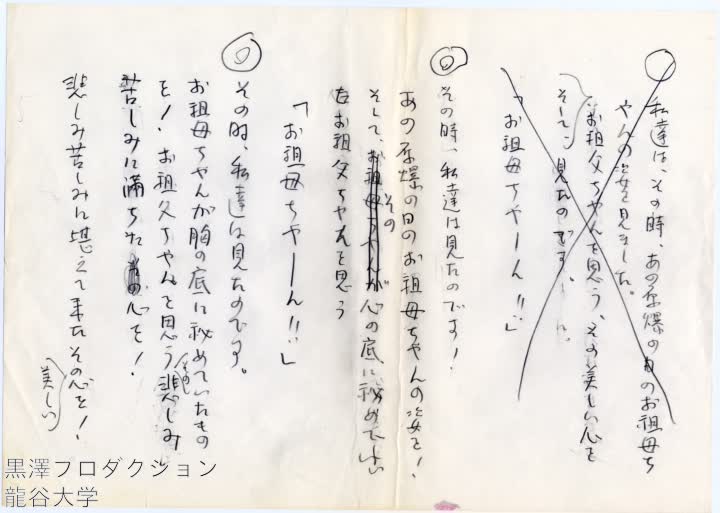 私達は、その時、あの原爆の日のお祖母ち
やんの姿を見ました。
お祖父ちやんを思う、その美しい心を
そして、見たのです
「お祖母ちやーん!!」
その時、私達は見たのです!
あの原爆の日のお祖母ちやんの姿を!
そして、その心の底に秘めて
お祖父ちやんを思う
「お祖母ちやーん!!」
その時、私達は見たのです。
お祖母ちやんが胸の底に秘めていたもの
を!お祖父ちやんを思う悲しみ
苦しみに満ちた心を!
悲しみ苦しみに堪えて来たその心を!
美しい
黒澤プロダクション
龍谷大学